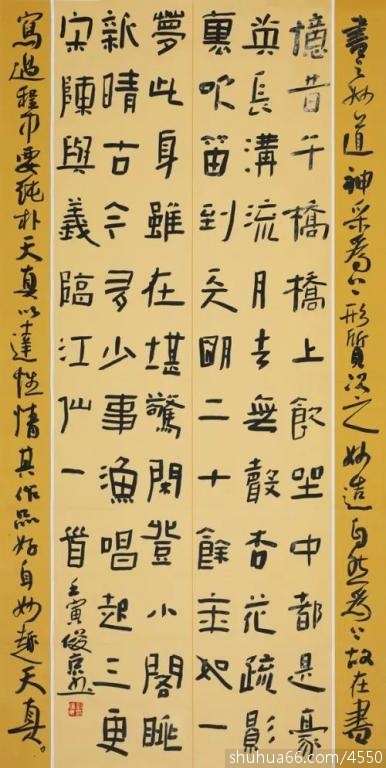 書之妙道神采為上形質次之妙造自然為上故在書
憶昔午橋橋上飲坐中都是豪
英長溝流月去無聲杏花疏影
裏吹笛到天明二十餘年如一
夢此身雖在堪驚閑登小閣眺
新晴古今多少事漁唱起三更
宋陳與義臨江仙一首
壬寅俊京
寫過程中要純朴天真以達性情其作品好自妙趣天真。
shuhua66.com/4550